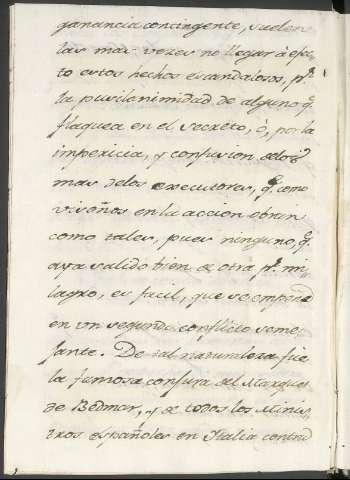 ganancia contingente, suelen
las mas vezes no llegar à efec-
to estos hechos escandalosos, p.r
la pusilanimidad de alguno q.e
flaquea en el secreto, ò, por la
impericia, y confusion de los
mas de los executores, q.e como
visoños en la accion obran
como tales, pues ninguno, q.e
aya salido bien de otra p.r mi-
lagro, es facil, que se empeñe
en un segundo conflicto seme-
jante. De tal naturaleza fue
la famosa conjura del Marques
de Bedmar, y de todos los Minis-
tros españoles en Italia contra